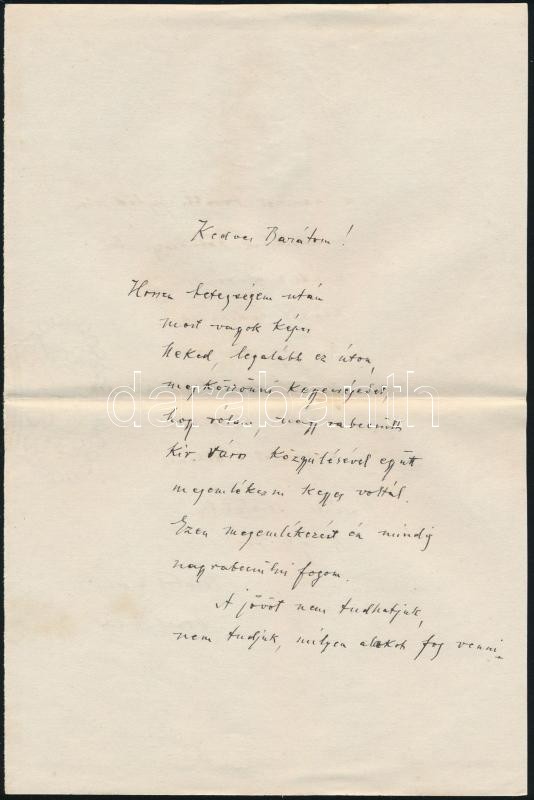 Kedves Barátom!
Hosszu betegségem után
most vagyok képes
Neked, legalább ez úton,
megköszönni kegyességedet,
hogy rólam, nagyrabecsült
Kir. Város közgyülésével együtt
megemlékezni kegyes voltál.
Ezen megemlékezést én mindig
nagyrabecsülni fogom.
A jövöt nem tudhatjuk,
nem tudjuk, milyen alakot fog venni.
darabanth